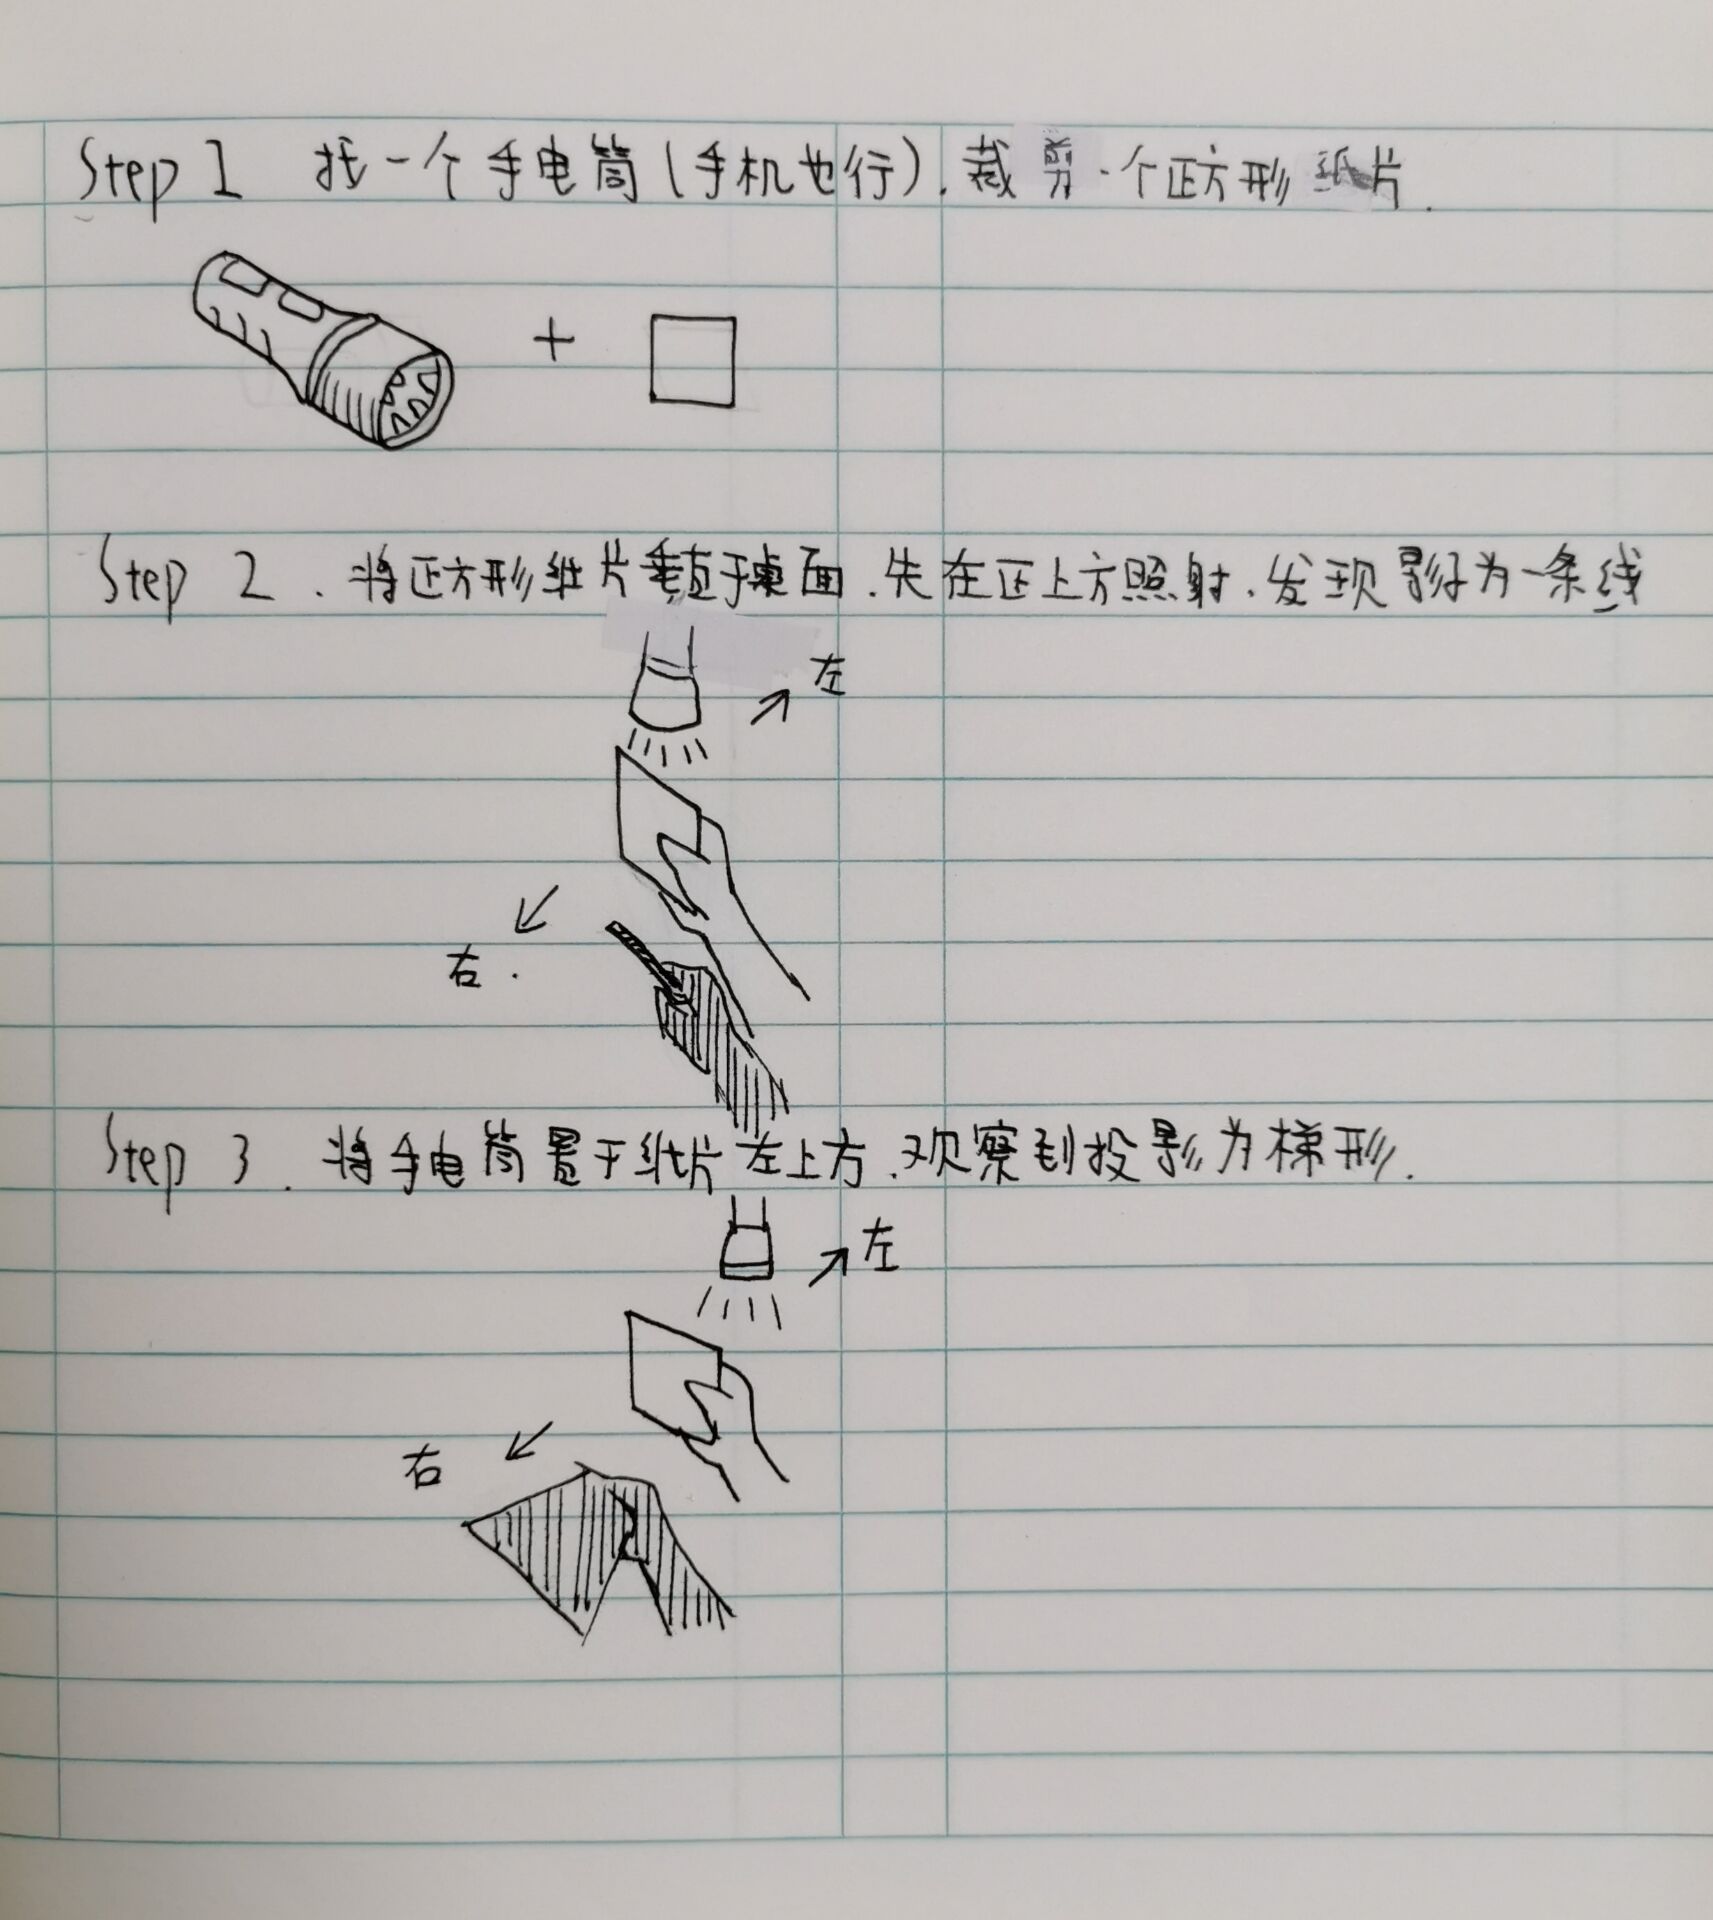 Step 1 找一个手电筒(手机也行).裁剪一个正方形纸片.
+
Step 2.将正方形纸片垂直于桌面.先在正上方照射.发现影子为一条线
左
右.
Step 3.将手电筒置于纸片左上方.观察到投影为梯形.
左
右